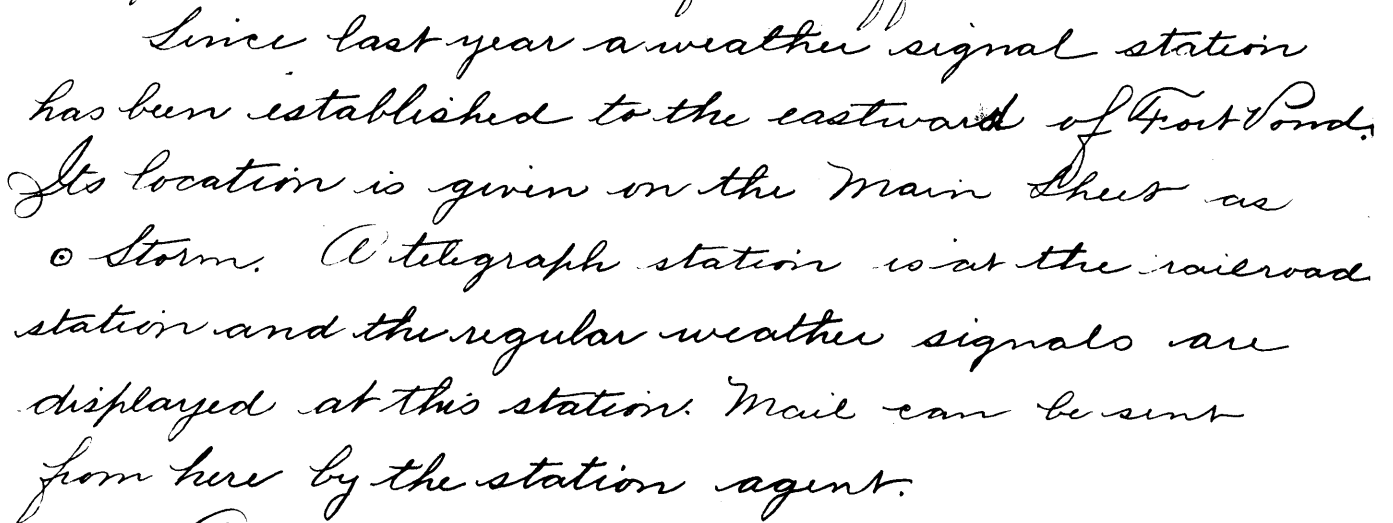 Since last year a weather signal station
has been established to the eastward of Fort Pond.
Its location is given on the Main Sheet as
⊙ Storm. A telegraph station is at the railroad
station and the regular weather signals are
displayed at this station. Mail can be sent
from here by the station agent.